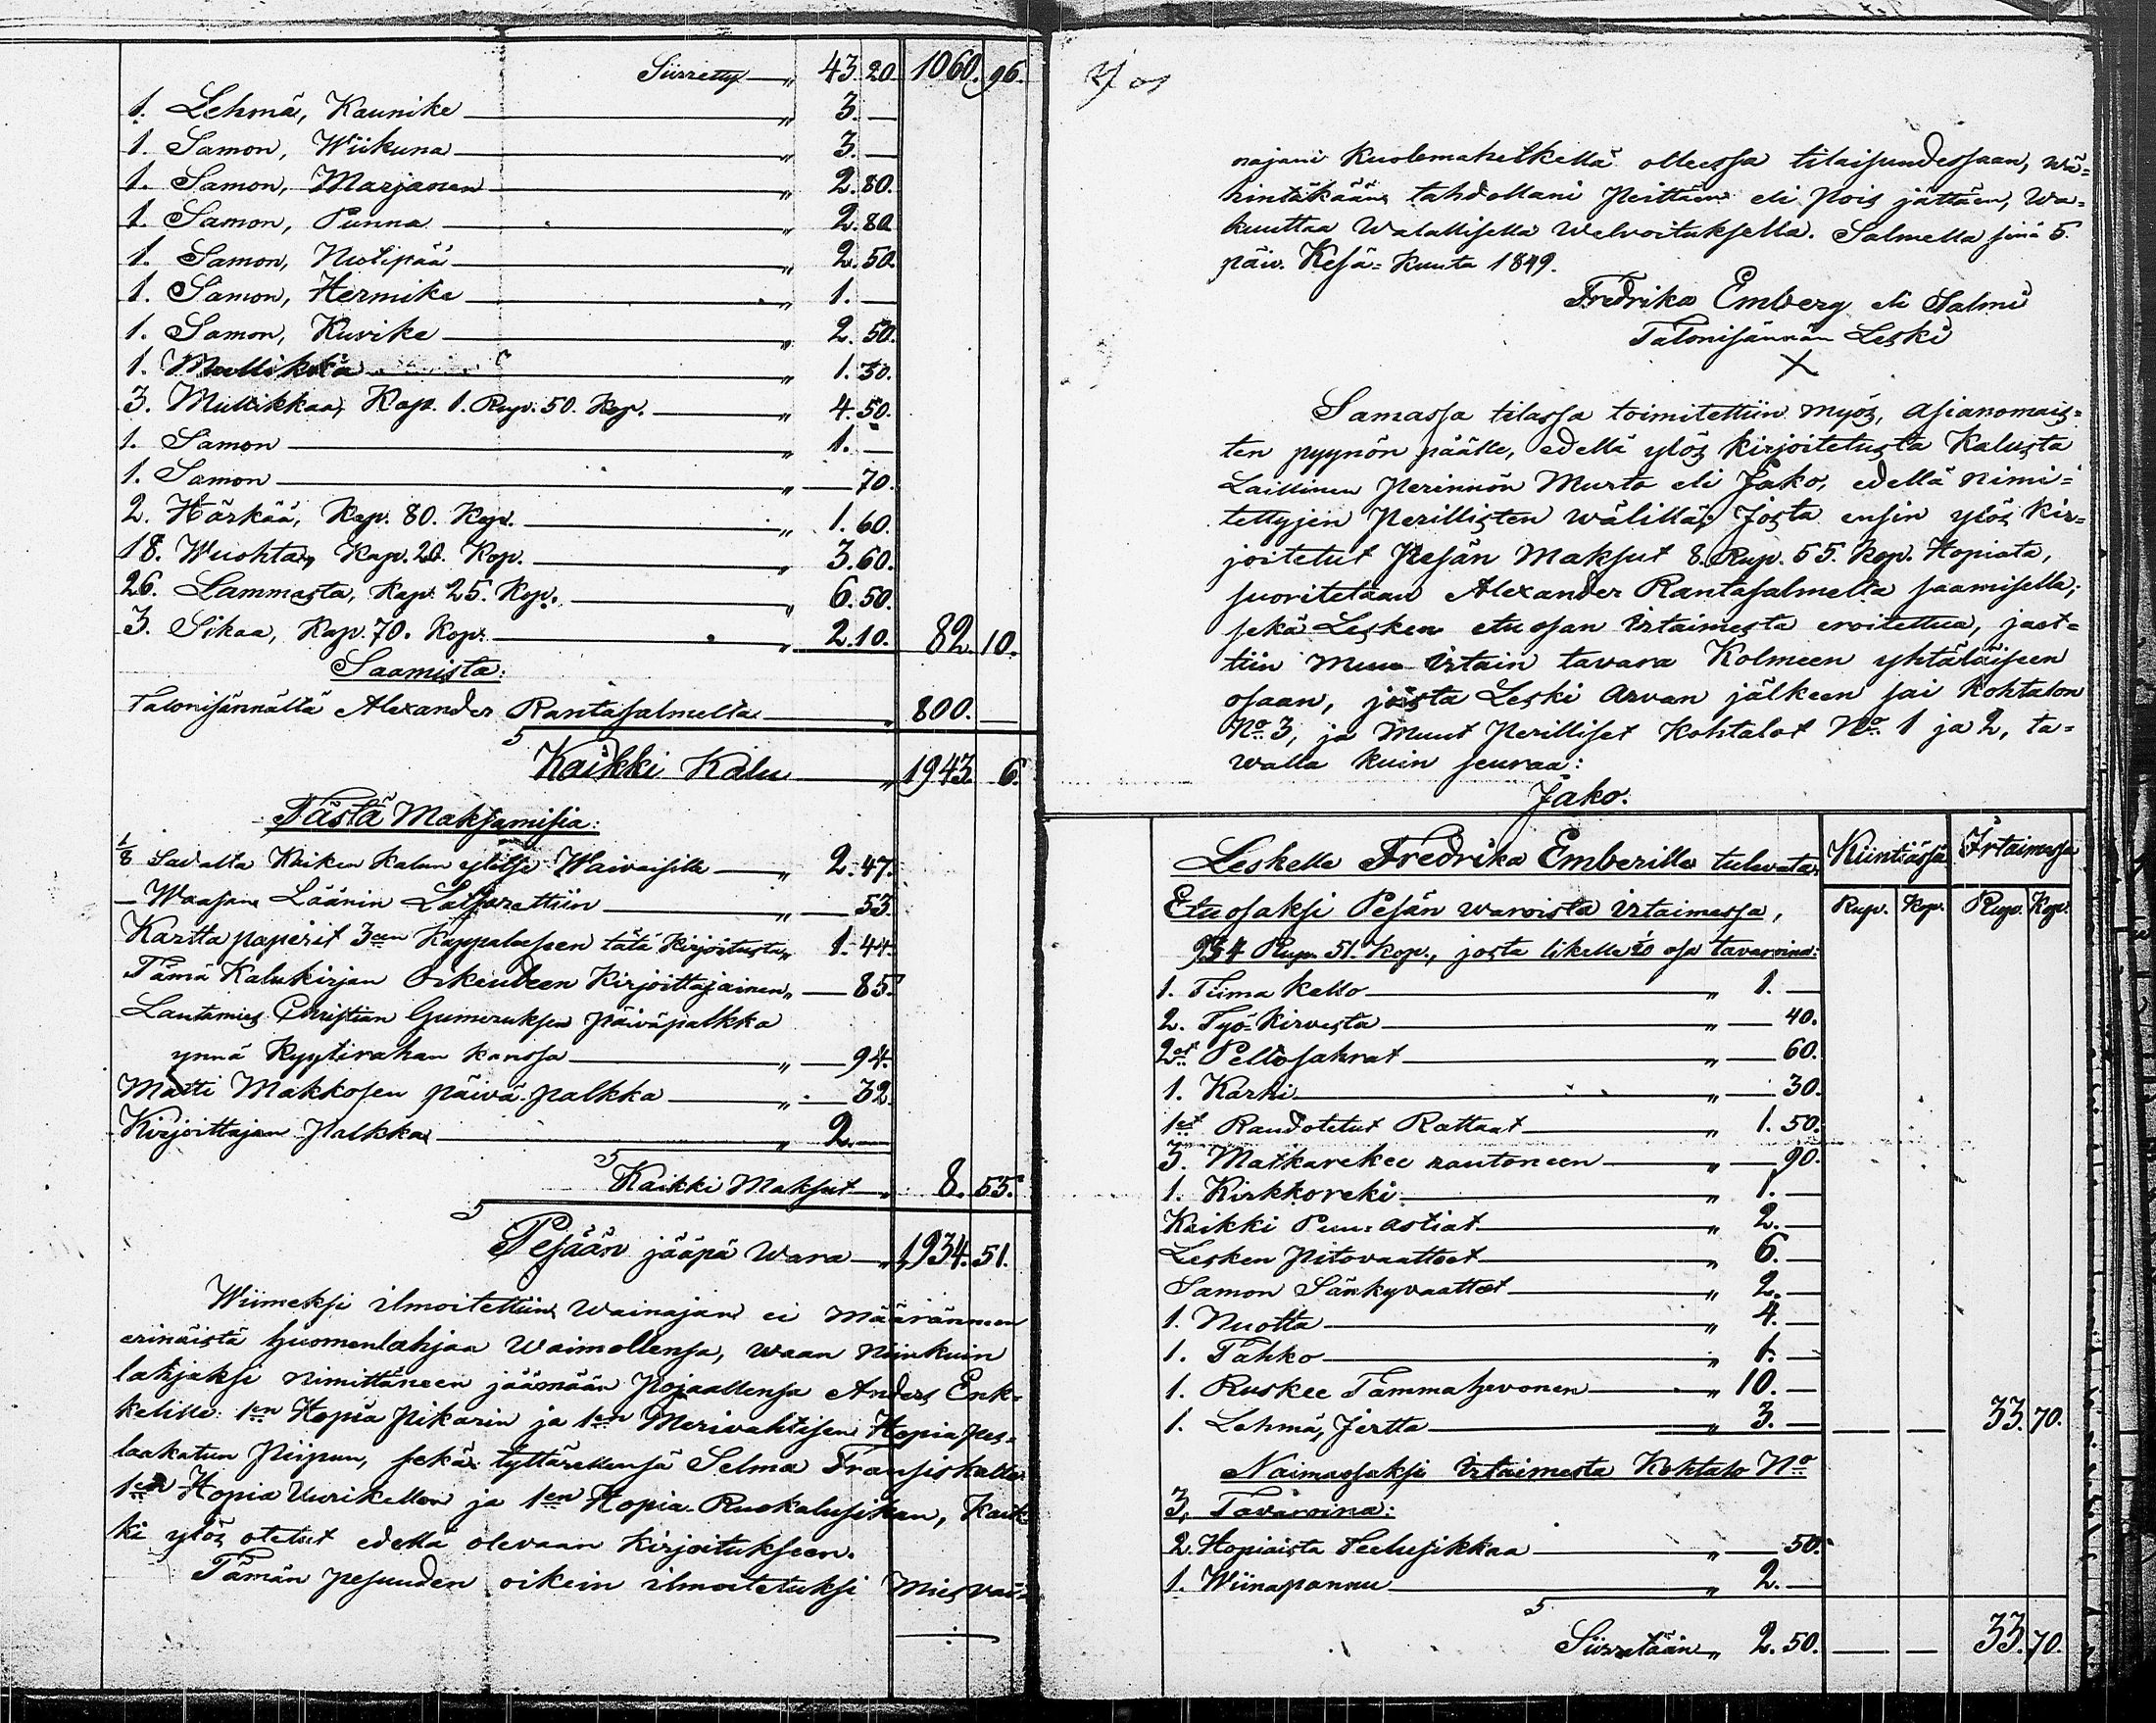 Siirretty — " 43. 20. 1060. 96.
1. Lehmä, Kaunike — " 3. —
1. Samon, Wiikuna — " 3. —
1. Samon, Marjanen — " 2. 80.
1. Samon, Punna — " 2. 80.
1. Samon, Nutipää — " 2. 50.
1. Samon, Hermike — " 1. —
1. Samon, Kuvike — " 2. 50.
1. Mullikka — " 1. 30.
3. Mullikkaa, Kap. 1. Rup. 50. Kop. — " 4. 50.
1. Samon — " 1. —
1. Samon — " — 70.
2. Härkää, Kap. 80. Kop. — " 1. 60.
18. Wuohta, Kap. 20. Kop. — " 3. 60.
26. Lammasta, Kap. 25. Kop. — " 6. 50.
3. Sikaa, Kap. 70. Kop. — " 2. 10. 82. 10.
Saamista:
Talonisännältä Alexander Rantasalmelta — " 800. —
Kaikki Kalu — " 1943. 6.
Tästä Maksamisia:
1/8 Sadalta Kaiken Kalun ylitse Waivaisille — " 2. 47.
— Waasan Läänin Latsarettiin — " — 53.
Kartta paperit 3een Kappaleseen tätä Kirjoitusta " 1. 44.
Tämä Kalukirjan Oikeudeen Kirjoittajainen " — 85.
Lautamies Christian Gumeruksen päiväpalkka
ynnä Kyytirahan kanssa — " — 94.
Matti Makkosen päivä palkka — " — 32.
Kirjoittajan Palkka — " 2. —
Kaikki Maksut — " 8. 55.
Pesään jääpä Wara — " 1934. 51.
Wiimeksi ilmoitettiin Wainajan ei määränneen
erinäistä huomenlahjaa Waimollensa, waan niinkuin
lahjaksi nimittäneen jäämään Pojaallensa Anders Enk-
kelille 1en Hopia Pikarin ja 1en Merivahtisen Hopia pes-
laakatun Piipun, sekä tyttärellensä Selma Fransiskalle
1en Hopia Uurikellon ja 1en Hopia Ruokalusikan, Kaik-
ki ylös otetut edellä olevaan Kirjoitukseen.
Tämän pesuuden oikein ilmoitetuksi Mies vai-
najani Kuolemahetkellä olleessa tilaisuudessaan, wä=
hintäkään tahdollani Peittäin eli Pois jättäen, Wa=
kuuttaa Walallisella Welvoituksella. Salmella sinä 5.
päiv. Kesä= Kuuta 1849.
Fredrika Emberg eli Salmi
Talonisännän Leski
X
Samassa tilassa toimitettiin myös, asianomais=
ten pyynön päälle, edellä ylös kirjoitetusta Kalusta
Laillinen Perinnön Murto eli Jako, edellä nimi=
tettyjen Perillisten wälillä; Josta ensin ylös kir=
joitetut Pesän Maksut 8. Rup. 55. Kop. Hopiata,
suoritetaan Alexander Rantasalmelta saamisella;
sekä Lesken etuosan irtaimesta eroitettua, jaet=
tiin Muu irtain tavara Kolmeen yhtäläiseen
osaan, joista Leski Arvan jälkeen sai Kohtalon
No. 3, ja Muut Perilliset Kohtalot No. 1 ja 2, ta=
walla kuin seuraa:
Jako.
Leskelle Fredrika Emberille tulevata Kiintiässä Irtaimessa
Etuosaksi Pesän waroista irtaimessa, Rup. Kop. Rup. Kop.
934 Rup. 51. Kop., josta likelle 1/20 osa tavaroina:
1. Tiima Kello — " 1. —
2. Työ-Kirvestä — " — 40.
2et Peltosahrat — " — 60.
1. Karhi — " — 30.
1et Raudotetut Rattaat — " 1. 50.
3. Matkarekee rautoneen — " — 90.
1. Kirkkoreki — " 1. —
Kaikki Puu=astiat — " 2. —
Lesken Pitovaatteet — " 6. —
Samon Sänkyvaatteet — " 2. —
1. Nuotta — " 4. —
1. Tahko — " 1. —
1. Ruskee Tammahevonen — " 10. —
1. Lehmä, Jertta — " 3. — — — 33. 70.
Naimaosaksi irtaimesta Kohtalo No
3, Tavaroina:
2. Hopiaista Teelusikkaa — " — 50.
1. Wiinapannu — " 2. —
Siirretään " 2. 50. — — 33. 70.